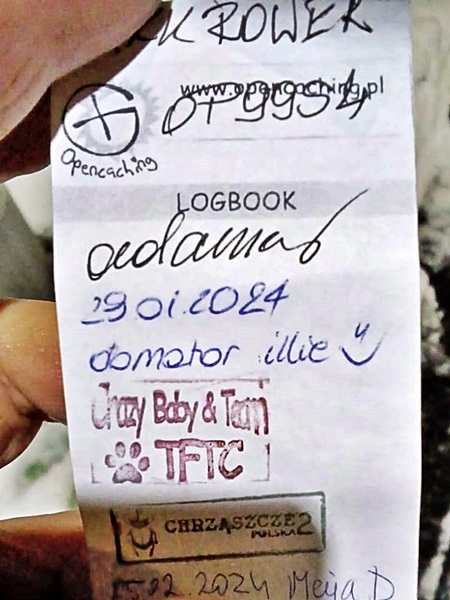 ROWER
www.opencaching.pl
OP99S4
Opencaching
LOGBOOK
29 01.2024
domator illie
Crazy Baby & Team
TFTC
CHRZĄSZCZE2
POLSKA
02.2024 D